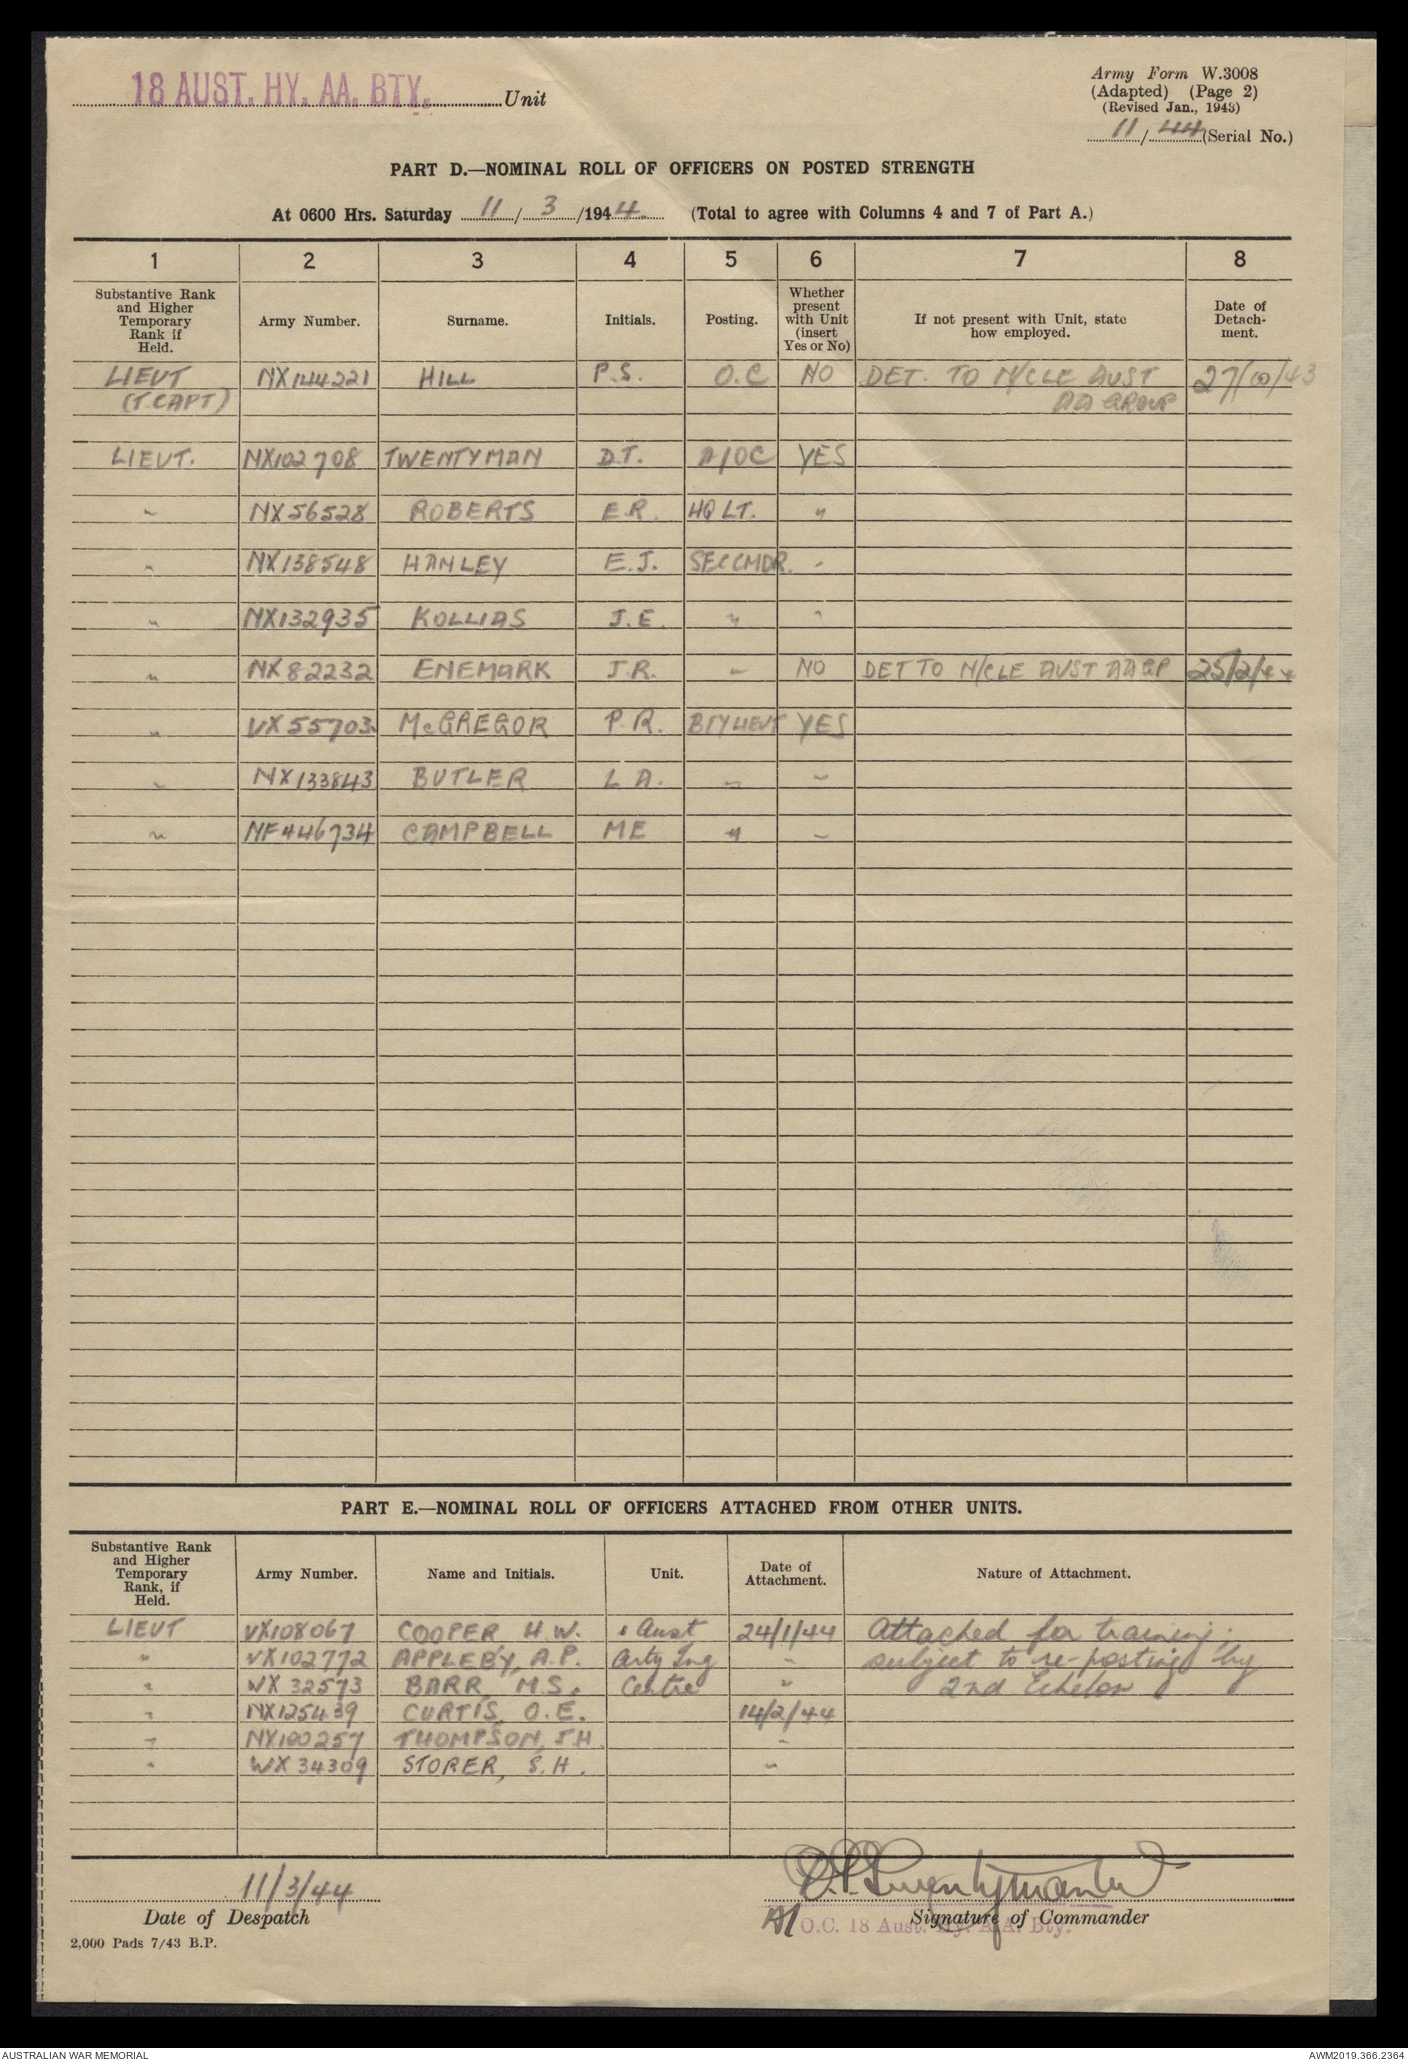 18 AUST. HY. AA. BTY. Unit
Army Form W.3008
(Adapted) (Page 2)
(Revised Jan., 1943)
11/44 (Serial No.)
PART D.—NOMINAL ROLL OF OFFICERS ON POSTED STRENGTH
At 0600 Hrs. Saturday 11/3/1944. (Total to agree with Columns 4 and 7 of Part A.)
1 2 3 4 5 6 7 8
Substantive Rank and Higher Temporary Rank if Held. Army Number. Surname. Initials. Posting. Whether present with Unit (insert Yes or No) If not present with Unit, state how employed. Date of Detach-ment.
LIEUT NX144221 HILL P.S. O.C NO DET. TO N/CLE AUST 27/10/43
(T.CAPT) AA GROUP
LIEUT. NX102708 TWENTYMAN D.T. A/OC YES
" NX56528 ROBERTS E.R. HQ LT. "
" NX138548 HANLEY E.J. SEC CMDR. "
" NX132935 KOLLIAS J.E. " "
" NX82232 ENEMARK J.R. " NO DET TO N/CLE AUST AA GP 25/2/44
" VX55703 McGREGOR P.R. BTY LIEUT YES
" NX133843 BUTLER L A. " "
" NF446734 CAMPBELL ME " "
PART E.—NOMINAL ROLL OF OFFICERS ATTACHED FROM OTHER UNITS.
Substantive Rank and Higher Temporary Rank, if Held. Army Number. Name and Initials. Unit. Date of Attachment. Nature of Attachment.
LIEUT VX108067 COOPER H.W. 1 Aust 24/1/44 Attached for training;
" VX102772 APPLEBY, A.P. Arty Tng " subject to re-posting by
" WX32573 BARR, M.S. Centre " 2nd Echelon
" NX125439 CURTIS, O.E. 14/2/44
" NX100257 THOMPSON, J.H. "
" WX34309 STORER, S.H. "
11/3/44 D.T. Twentyman Lieut
Date of Despatch Signature of Commander
A/ O.C. 18 Aust. Hy. A.A. Bty.
2,000 Pads 7/43 B.P.
AUSTRALIAN WAR MEMORIAL AWM2019.366.2364